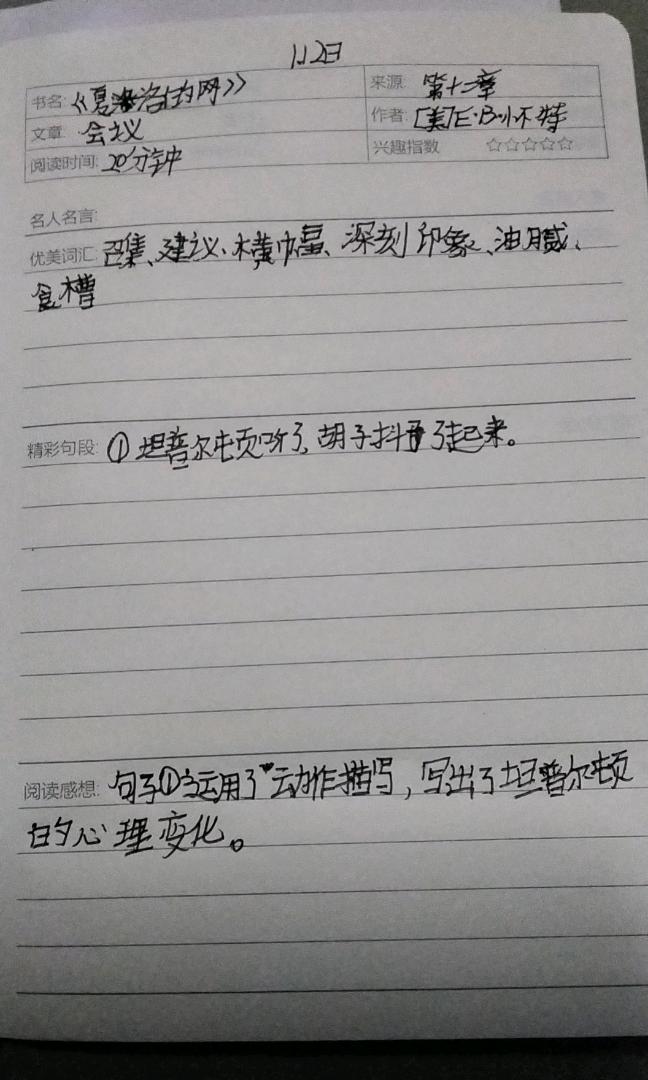 1.12日
书名:《夏洛的网》 来源: 第十章
文章: 会议 作者: [美]E·B·怀特
阅读时间: 20分钟 兴趣指数 ☆☆☆☆☆
名人名言:
优美词汇: 召集、建议、横幅、深刻印象、油腻、
食槽
精彩句段: ①坦普尔顿呀了,胡子抖了起来。
阅读感想: 句子①运用了动作描写,写出了坦普尔顿
的心理变化。